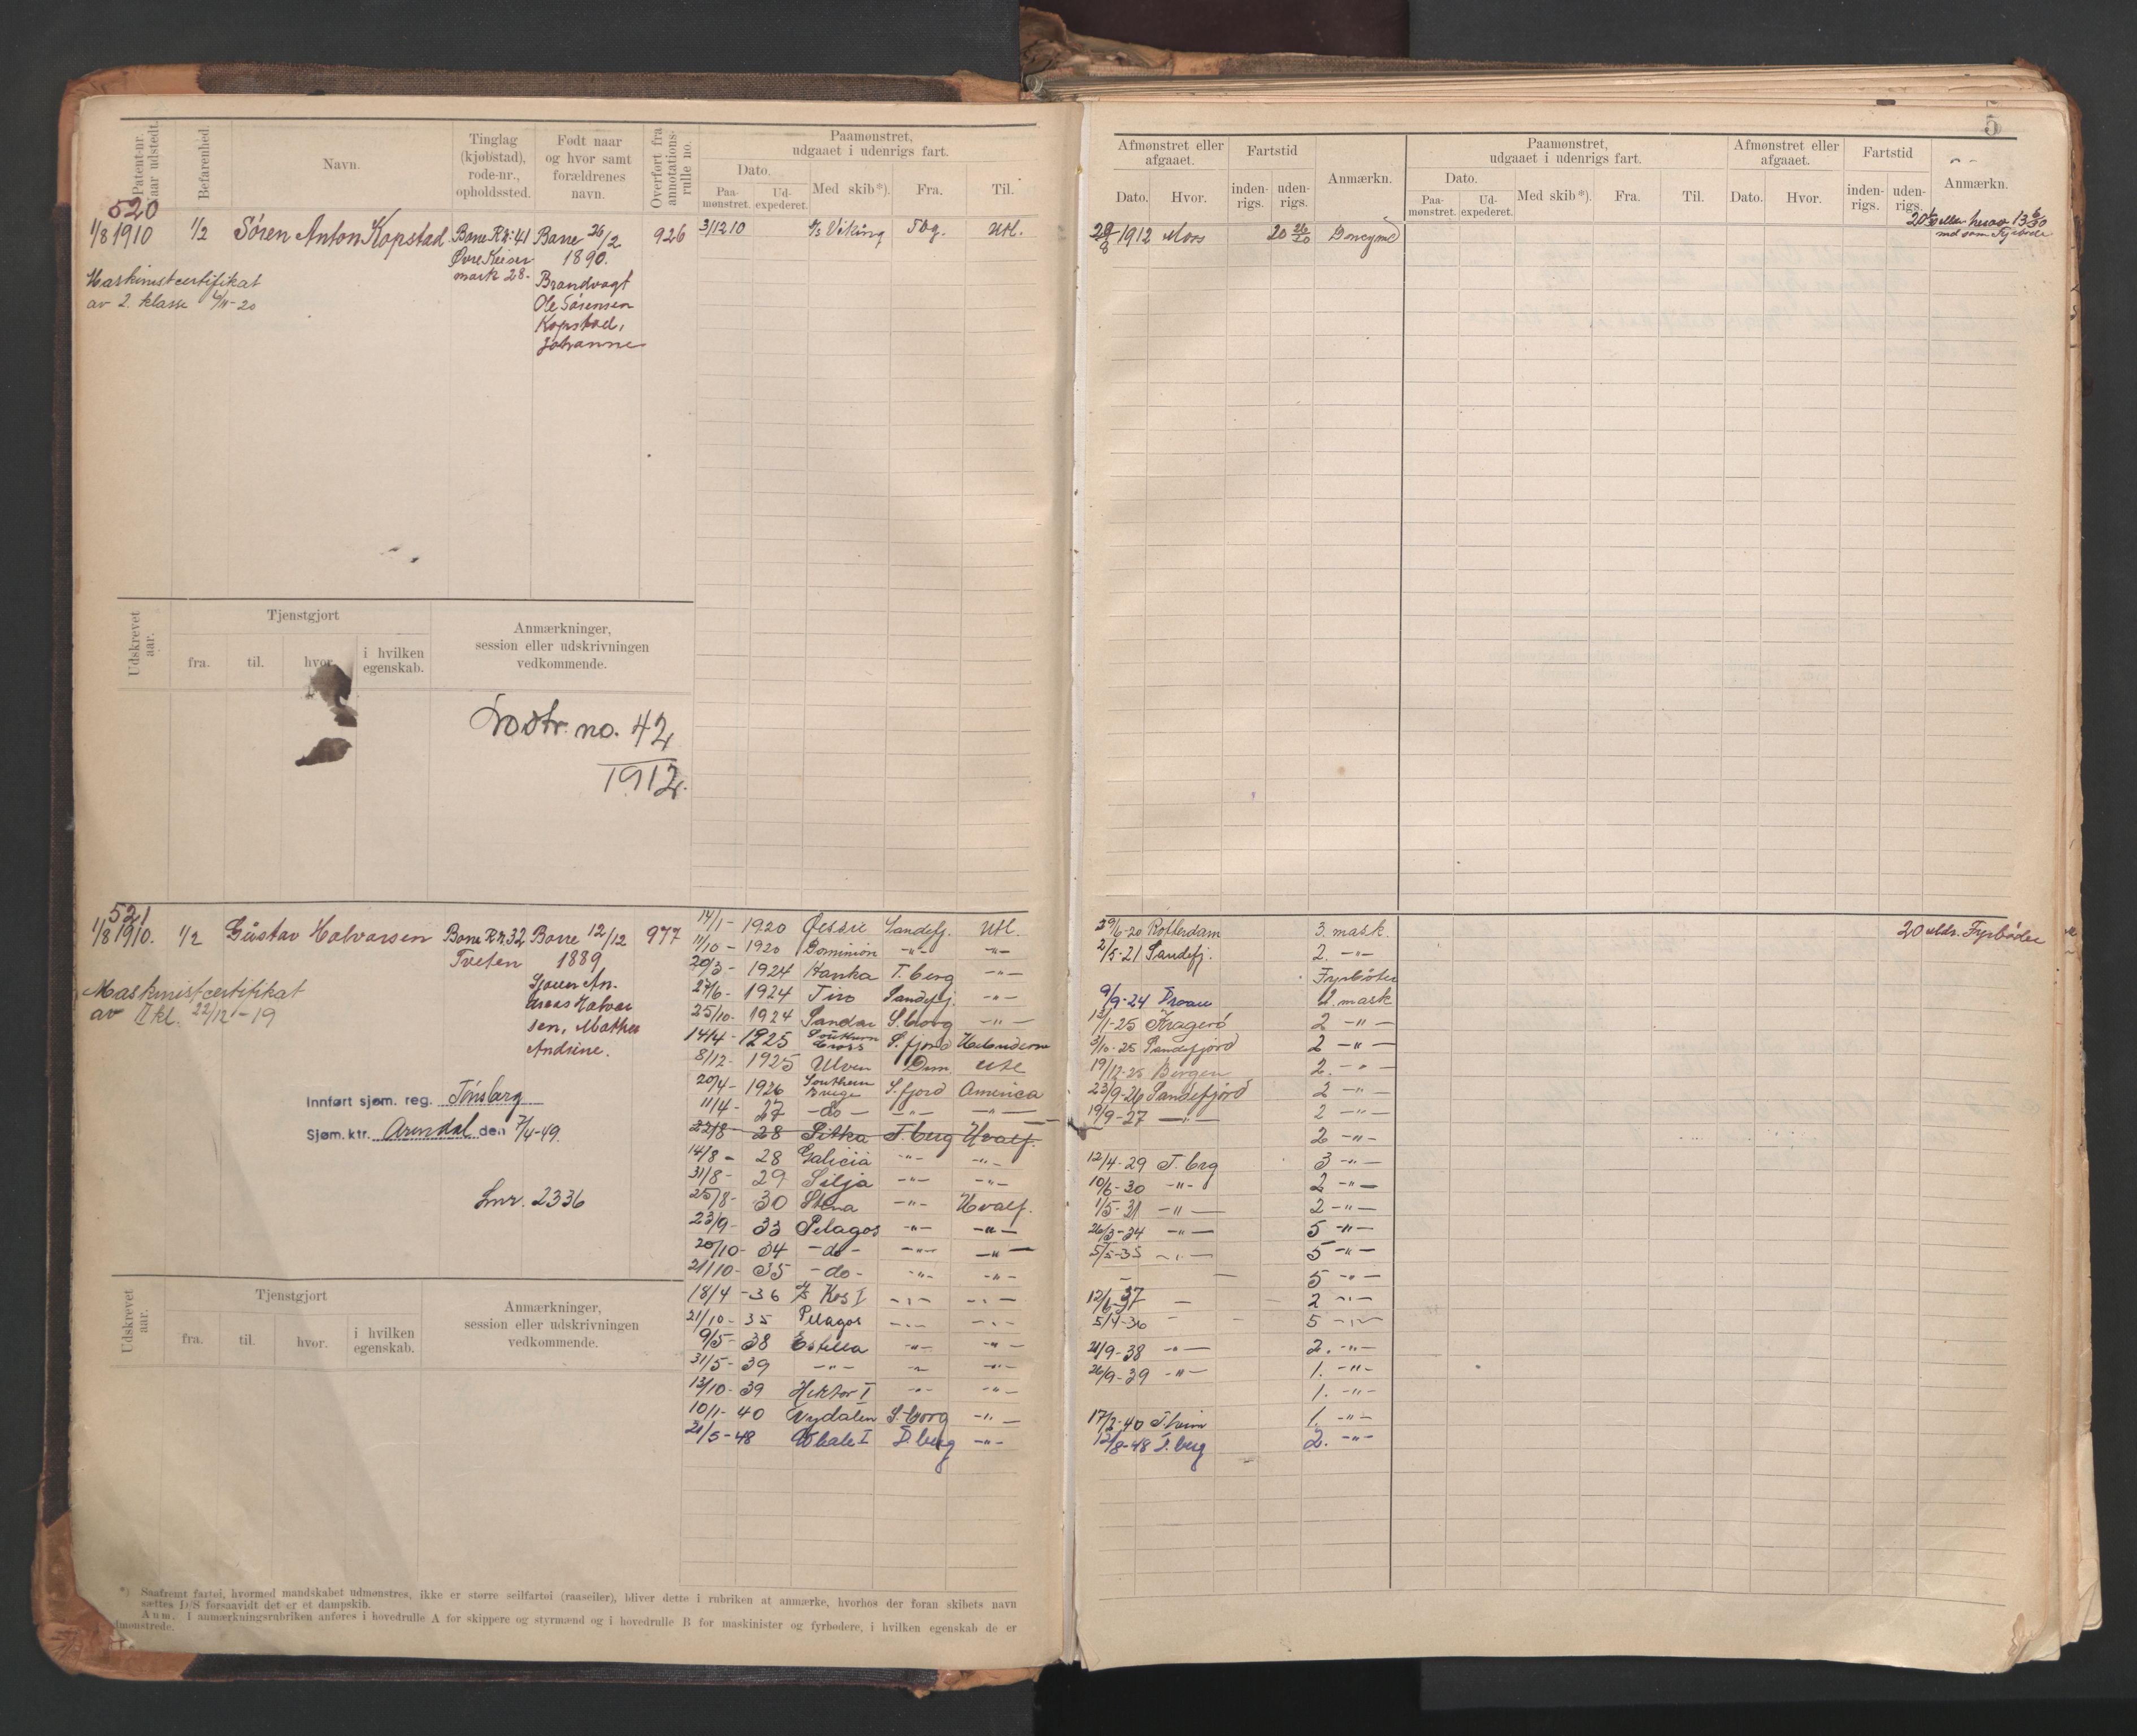 5
Patent-nr. Naar udstedt.
Befarenhed.
Navn.
Tinglag (kjøbstad), rode-nr., opholdssted.
Født naar og hvor samt forældrenes navn.
Overført fra annotations-rulle no.
Paamønstret, udgaaet i udenrigs fart.
Dato.
Paa-mønstret.
Ud-expederet.
Med skib*).
Fra.
Til.
Afmønstret eller afgaaet.
Dato.
Hvor.
Fartstid
inden-rigs.
uden-rigs.
Anmærkn.
Paamønstret, udgaaet i udenrigs fart.
Dato.
Paa-mønstret.
Ud-expederet.
Med skib*).
Fra.
Til.
Afmønstret eller afgaaet.
Dato.
Hvor.
Fartstid
inden-rigs.
uden-rigs.
Anmærkn.
520
1/8 1910 1/2 Søren Anton Kopstad Borre R.nr. 41 Borre 26/2 926 3/12 10 Viking Tbg. Utl. 1912 Moss 20 26/30 Donkeymd
Øvre Keiser 1890.
mark 28.
Brandvagt
Ole Sørensen
Kopstad,
Johanne
Maskinistcertifikat
av 2. klasse
Udskrevet aar.
Tjenstgjort
fra.
til.
hvor.
i hvilken egenskab.
Anmærkninger, session eller udskrivningen vedkommende.
no. 42
1912.
521
1/8 1910. 1/2 Gustav Halvorsen Borre R.nr. 32 Borre 12/12 977
Tveten 1889
Halvor
sen, Mathea
Andrine.
Maskinistcertifikat
av II kl. 22/12-19
Innført sjøm. reg. Tønsberg
Sjøm.ktr. Arendal den 7/4-49.
Lnr. 2336
14/1- 1920 Sandefj. Utl. 29/6-20 Rotterdam 3. mask. 20 mdr. Fyrbøder
11/10- 1920 Dominion -"- -"- 2/5-21 Sandefj. 2. -"-
20/3- 1924 Hanka T.berg -"- Fyrbøter
27/6- 1924 Tiro Sandefj. -"- 9/9-24 2. mask
25/10- 1924 Sandar S.borg -"- 13/1-25 Kragerø 2 -"-
14/4- 1925 Southern Cross S.fjord 3/10-25 Sandefjord 2 -"-
8/12- 1925 Ulven Drm. Utl 19/12-25 Bergen 2. -"-
20/4- 1926 Southern S.fjord America 23/9-26 Sandefjord 2 -"-
11/4- 27 -do- -"- -"- 19/9-27 -"- 2 -"-
22/8- 28 Sitka T.berg Hvalf. 2 -"-
14/8- 28 Galicia -"- -"- 12/4-29 T.brg 3 -"-
31/8- 29 Silja -"- -"- 10/6-30 -"- 2 -"-
25/8- 30 Stena -"- Hvalf. 1/5-31 -"- 2 -"-
23/9- 33 Pelagos -"- -"- 26/3-34 -"- 5 -"-
20/10- 34 -do- -"- -"- 5/5-35 -"- 5 -"-
21/10- 35 -do- -"- -"- 5 -"-
18/4- 36 Kos I -"- -"- 12/6-37 - 2 -"-
21/10- 35 Pelagos -"- -"- 5/4-36 - 5 -"-
9/5- 38 Estella -"- -"- 21/9-38 -"- 2. -"-
31/5- 39 -"- -"- -"- 26/9-39 -"- 1. -"-
13/10- 39 Hektor I -"- -"- 1. -"-
10/1- 40 Nydalen S.borg -"- 17/2-40 T.heim 1. -"-
21/5-48 Whale I T.berg -"- 12/8-48 T.berg 2. -"-
Udskrevet aar.
Tjenstgjort
fra.
til.
hvor.
i hvilken egenskab.
Anmærkninger, session eller udskrivningen vedkommende.
*) Saafremt fartøi, hvormed mandskabet udmønstres, ikke er større seilfartøi (raaseiler), bliver dette i rubriken at anmærke, hvorhos der foran skibets navn
sættes D/S forsaavidt det er et dampskib.
Anm. I anmærkningsrubriken anføres i hovedrulle A for skippere og styrmænd og i hovedrulle B for maskinister og fyrbødere, i hvilken egenskab de er